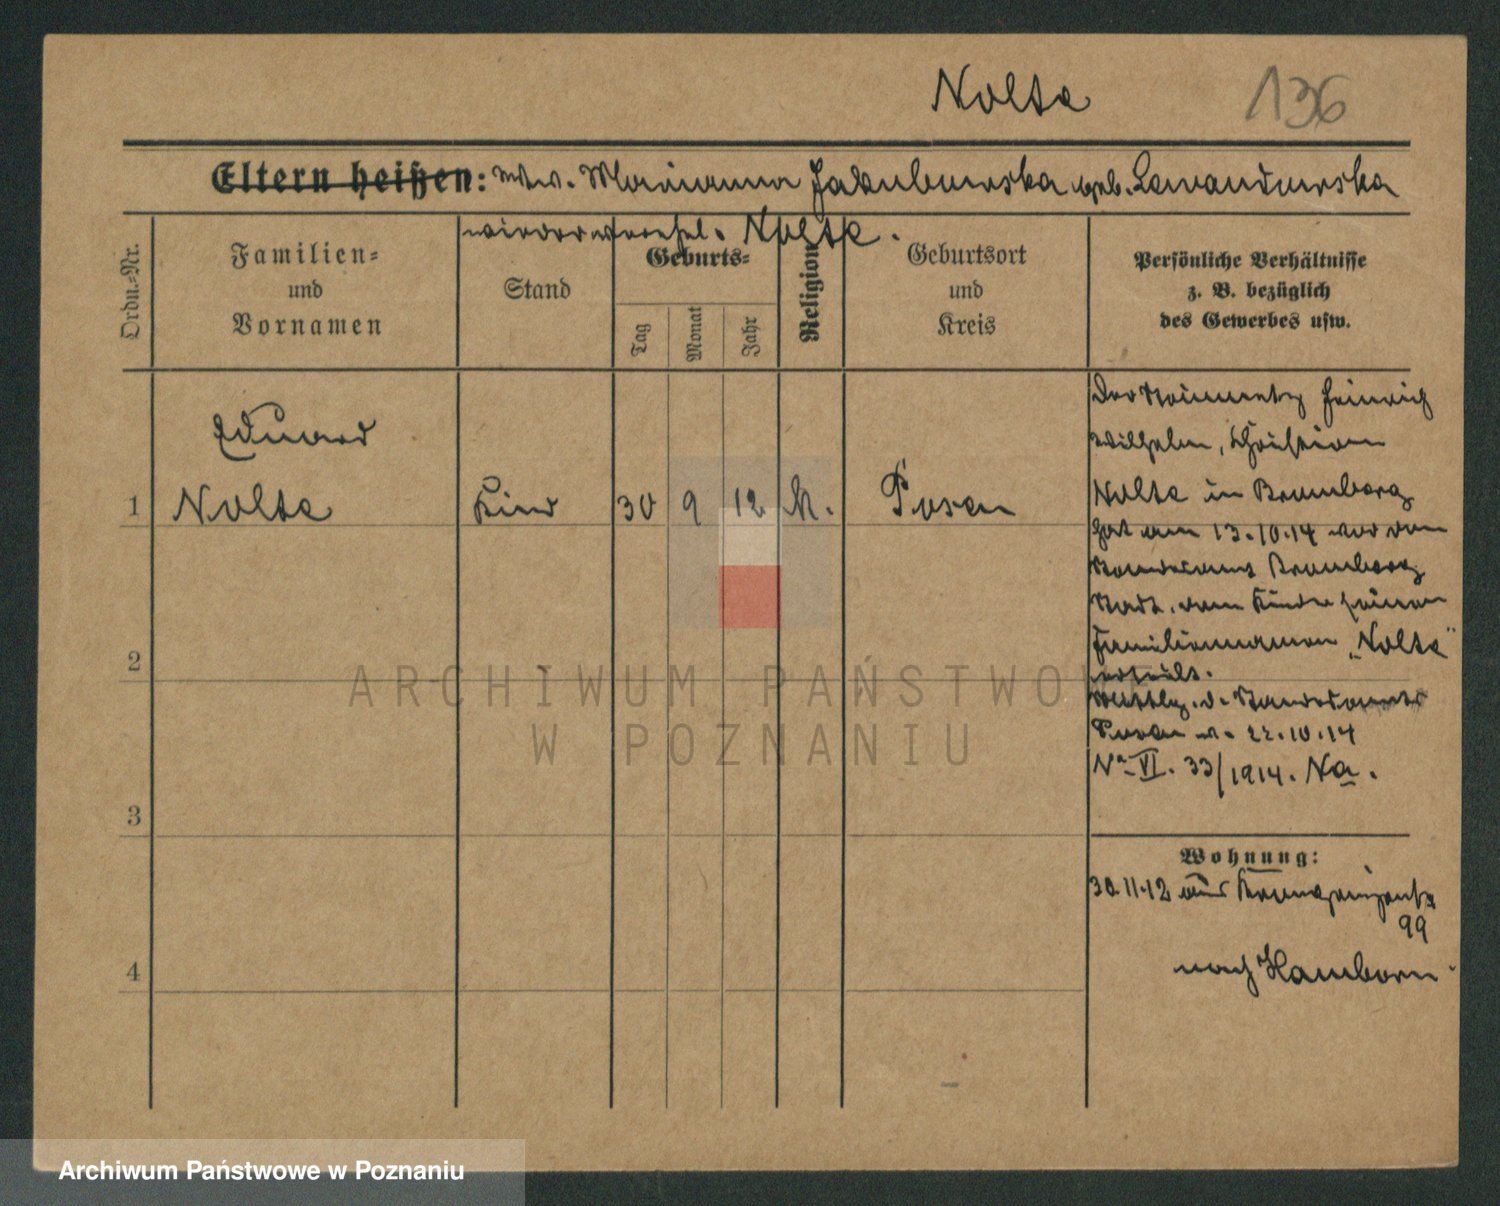 Nolte 136
Eltern heißen: Wwe. Marianna Jakubowska geb. Lewandowska
wiederverehel. Nolte.
Ordn.-Nr.
Familien-
und
Vornamen
Stand
Geburts-
Tag
Monat
Jahr
Religion
Geburtsort
und
Kreis
Persönliche Verhältnisse
z. B. bezüglich
des Gewerbes usw.
Eduard
1 Nolte Kind 30 9 12 k. Posen
Der Steinmetz Heinrich
Wilhelm, Christian
Nolte in Bromberg
hat am 13.10.14 vor dem
Standesamt Bromberg
Stadt, dem Kinde seinen
Familiennamen „Nolte"
erteilt.
Mittlg. d. Standesamts
Posen v. 22.10.14
No VI. 33/1914. Na.
2
3
4
Wohnung:
30.11.12 aus Kronprinzenstr
99
nach Hamborn
ARCHIWUM PAŃSTWO
W POZNANIU
Archiwum Państwowe w Poznaniu